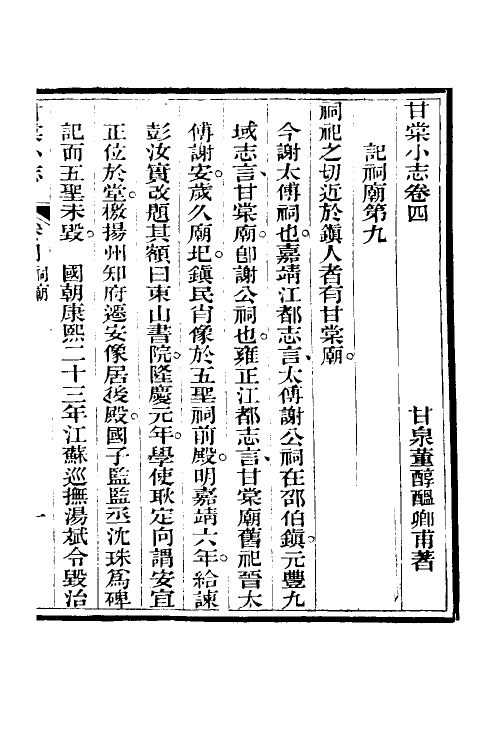 甘棠小志卷四
甘泉董醇醞卿甫著
記祠廟第九
祠祀之切近於鎮人者有甘棠廟。
今謝太傅祠也。嘉靖江都志言、太傅謝公祠在邵伯鎮。元豐九
域志言、甘棠廟。卽謝公祠也。雍正江都志言、甘棠廟舊祀晉太
傅謝安。歲久廟圯。鎮民肖像於五聖祠前殿。明嘉靖六年。給諫
彭汝實改題其額曰東山書院。隆慶元年。學使耿定向謂安宜
正位於堂。檄揚州知府遷安像居後殿。國子監監丞沈珠爲碑
記而五聖未毀。 國朝康熙二十三年江蘇巡撫湯斌令毀治
甘棠小志 卷四 祠廟 一